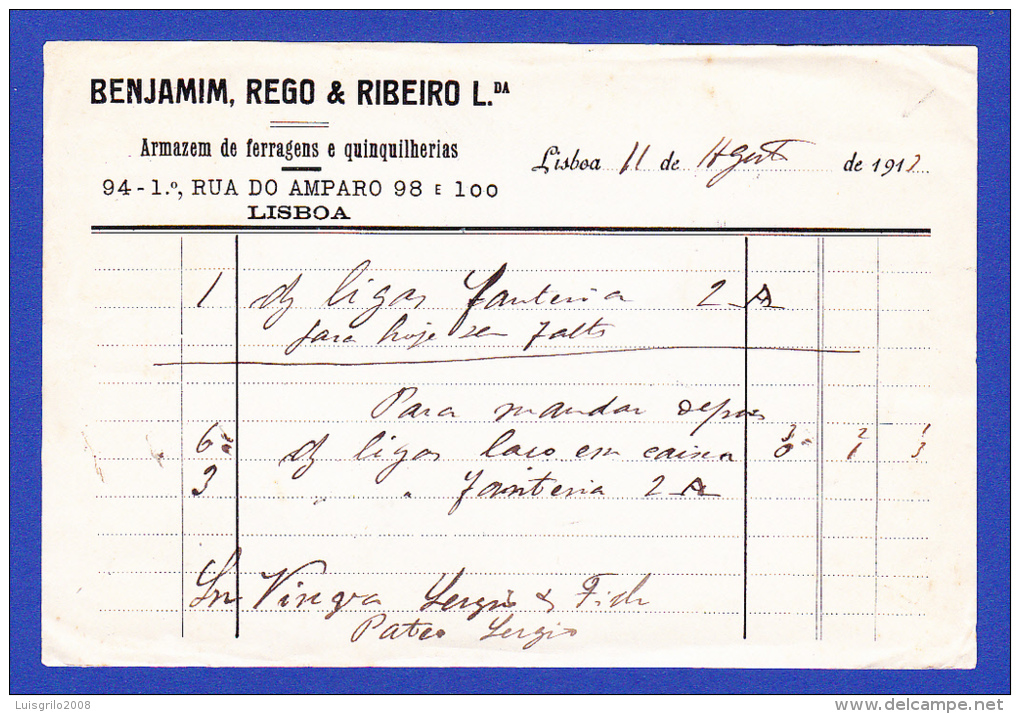 BENJAMIM, REGO & RIBEIRO L.DA
Armazem de ferragens e quinquilherias
94 - 1.º, RUA DO AMPARO 98 E 100
LISBOA
Lisboa 11 de Agost de 1912
1 dz ligas fanteria 2 A
para hoje sem falta
Para mandar depois
3 2 1
6 dz ligas laco em caixa 0 1 3
3 " " fanteria 2 A
Snr Sergio &
Pateo Sergio
Luisgrilo2008
www.delcampe.net